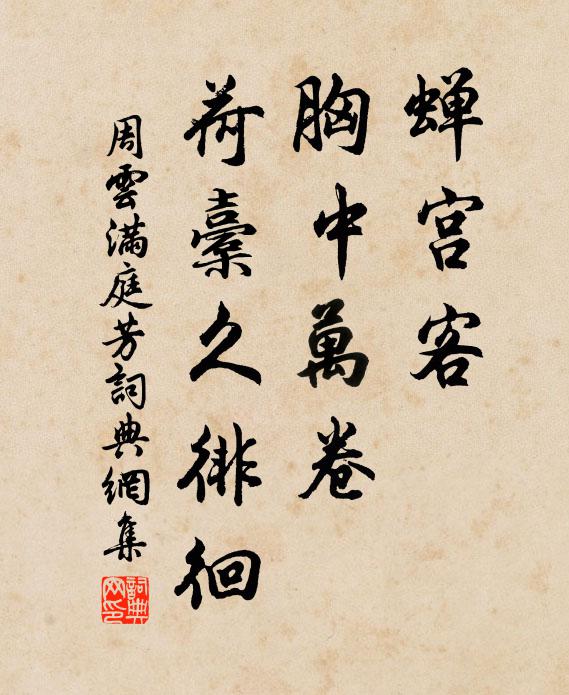 蝉宫客
胸中萬卷
荷橐久徘徊
周雲滿庭芳詞典網集
詞典
网印